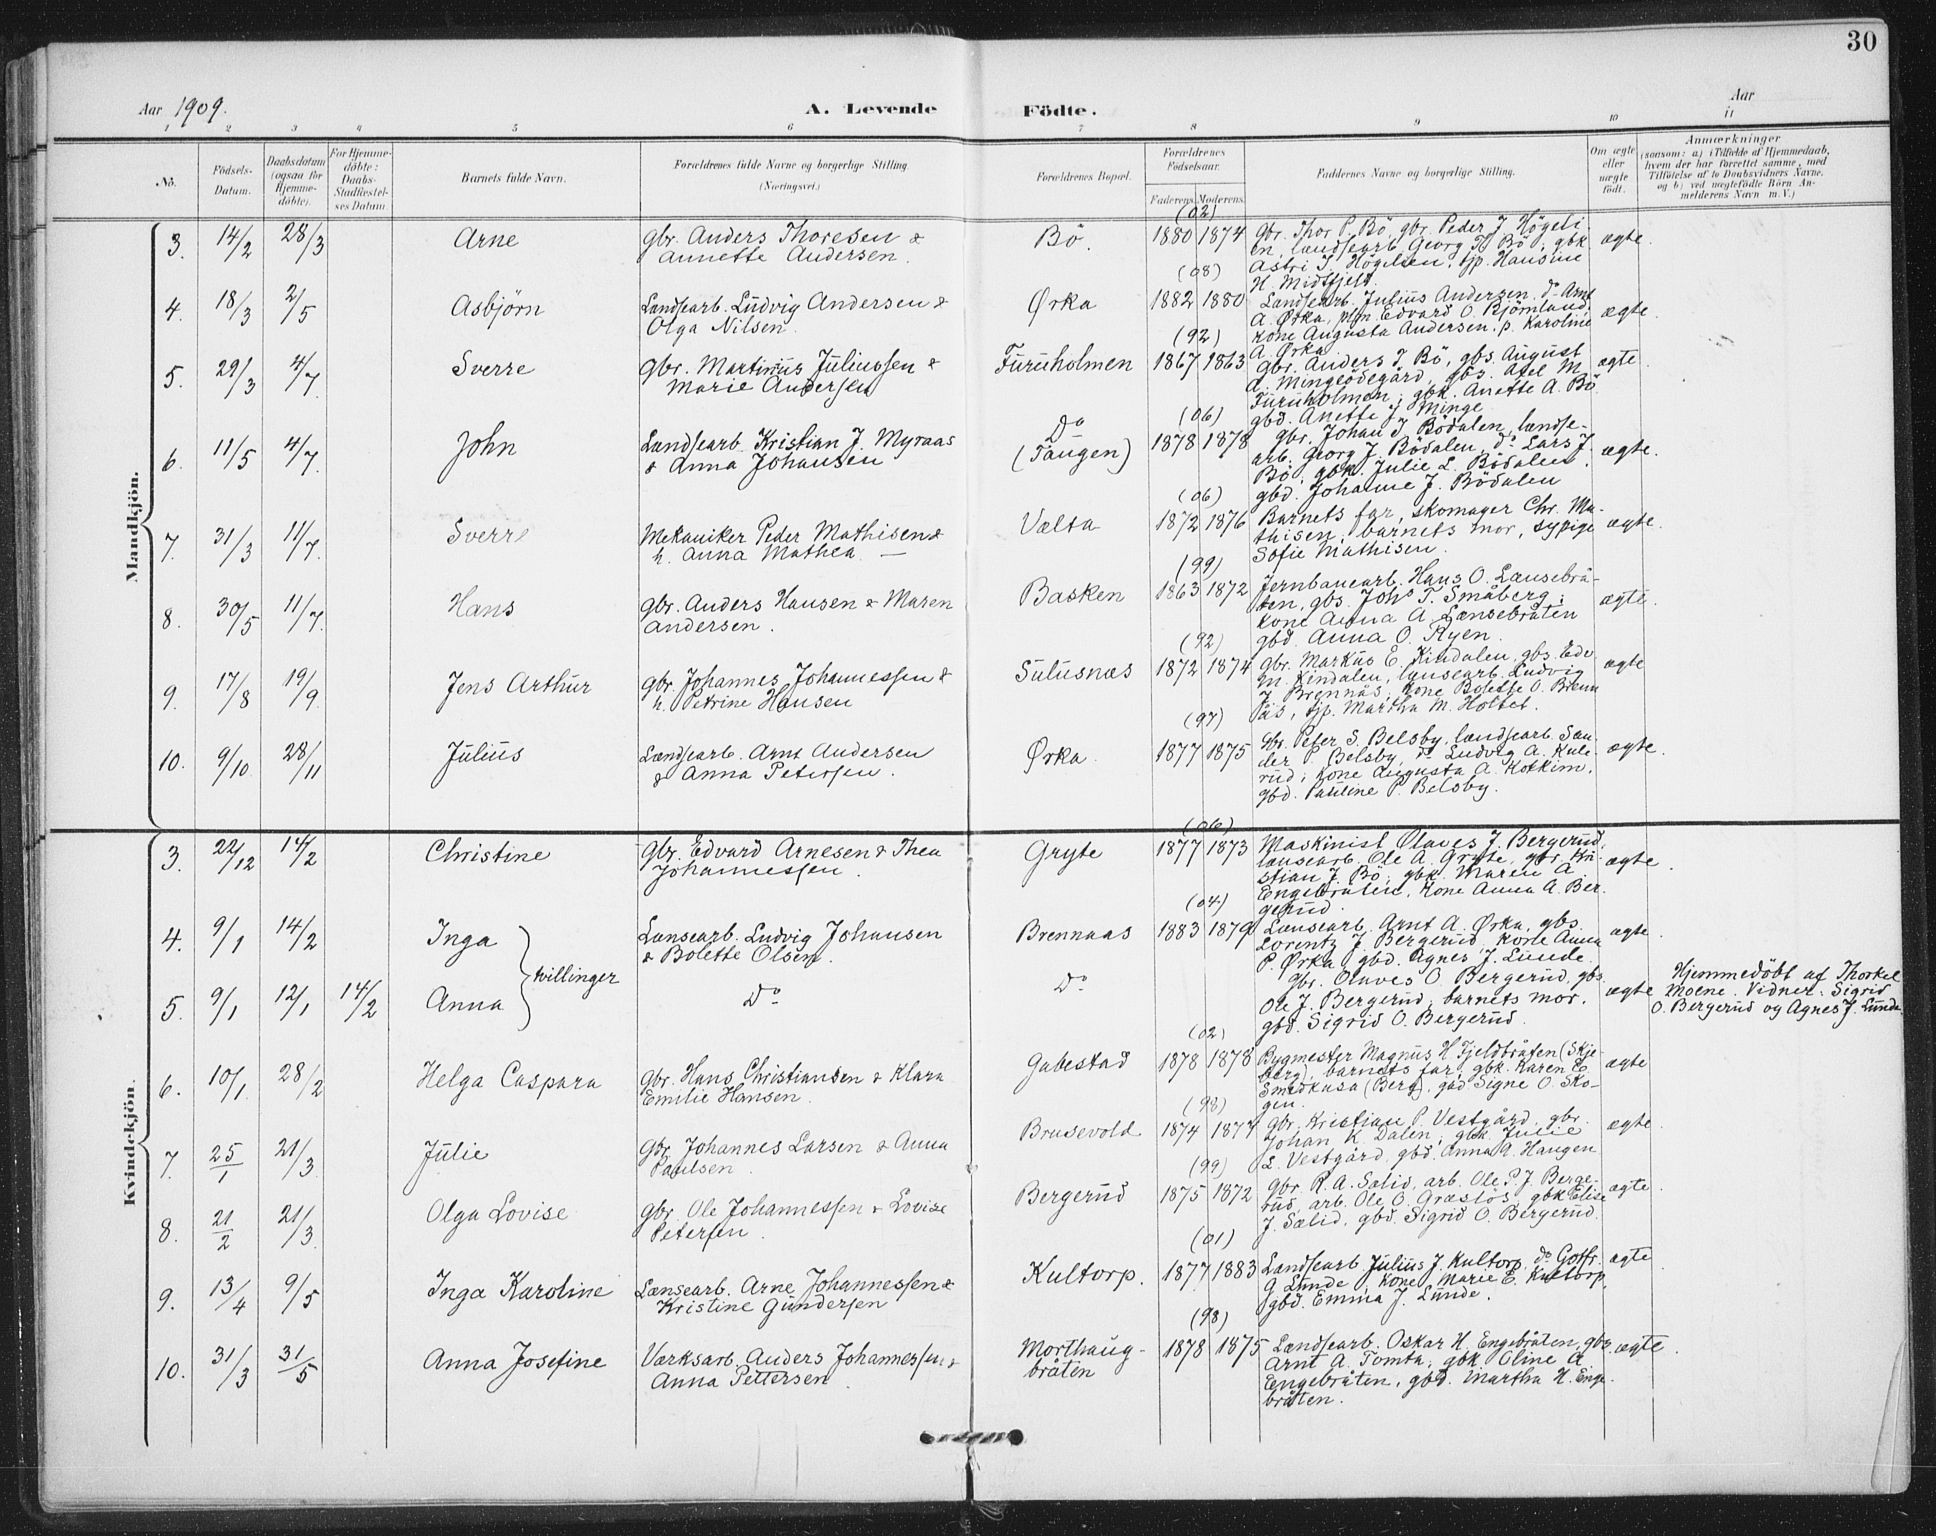 30
Aar 1909. A. Levende Födte. Aar
1 2 3 4 5 6 7 8 9 10 11
No. Födsels-Datum. Daabsdatum (ogsaa for Hjemmedöbte). For Hjemmedöbte: Daabs-Stadfæstelses Datum. Barnets fulde Navn. Forældrenes fulde Navne og borgerlige Stilling. (Næringsvei.) Forældrenes Bopæl. Forældrenes Födselsaar. Faderens. Moderens. Faddernes Navne og borgerlige Stilling. Om ægte eller uægte födt. Anmærkninger (saasom: a) i Tilfælde af Hjemmedaab, hvem der har forrettet samme, med Tilföielse af to Daabsvidners Navne, og b) ved uægtefödte Börn Anmelderens Navn m. V.)
Mandkjön.
(02)
3. 14/2 28/3 Arne gbr. Anders Thoresen & Annette Andersen. Bö. 1880 1874 gbr. Thor P. Bö, gbr. Peder J. Högeli
en, landsearb. Georg T. Bö; gbk.
Astri J. Högelien, tjp. Hansine
H. Midtfjeld.
(08)
4. 18/3 2/5 Asbjörn Landsearb. Ludvig Andersen & Olga Nilsen. Ørka 1882 1880 Landsearb. Julius Andersen, do Arnt
A. Ørka, Edvard O. Björnlund,
Kone Augusta Andersen, p. Karoline
A. Ørka
ægte.
(92)
5. 29/3 4/7 Sverre gbr. Martinius Juliussen & Marie Andersen Furuholmen 1867 1863 gbr. Anders J Bö, gbs. August
A. Mingeödegård, gbs. Axel M.
Furuholmen; gbk. Anette A. Bö
gbd. Anette J. Minge
ægte
(06)
6. 11/5 4/7 John Landsearb. Kristian J. Myraas & Anna Johansen Do (Tangen) 1878 1878 gbr. Johan J Bödalen, landse-
arb. Georg J. Bödalen, do Lars J.
Bö, gbk. Julie L. Bödalen,
gbd. Johanne J. Bödalen
ægte.
(06)
7. 31/3 11/7 Sverre Mekaniker Peder Mathisen & h. Anna Mathea — Vælta 1872 1876 Barnets far, skomager Chr. Ma-
thisen, barnets mor, sypige
Sofie Mathisen.
ægte.
(99)
8. 30/5 11/7 Hans gbr. Anders Hansen & Maren Andersen. Basken 1863 1872 Jernbanearb. Hans O. Lænsebrå-
ten, gbs. Johs T. Småberg;
kone Anna A. Lænsebråten
gbd. Anna O. Ryen.
ægte.
(92)
9. 17/8 19/9 Jens Arthur gbr. Johannes Johannessen & h. Petrine Hansen Sulusnæs 1872 1874 gbr. Markus E. Kindalen, gbs. Edv.
M. Kindalen, lænsearb. Ludvig
J. Brennäs; kone Bolette O. Brenn
äs, tjp. Martha M. Holtet.
ægte
(97)
10. 9/10 28/11 Julius Lændsearb. Arnt Andersen & Anna Petersen. Ørka 1877 1875 gbr. Peter S. Belsby, landsearb. San-
der P. Belsby, do Ludvig A. Kule-
rud; kone Augusta A. Kotkim,
gbd. Pauline P. Belsby.
ægte.
Kvindekjön.
(06)
3. 22/12 14/2 Christine gbr. Edvard Arnesen & Thea Johannessen. Gryte 1877 1873 Maskinist Olaves J. Bergerud,
lænsearb. Ole A. Gryte, gbr. Kri-
stian J. Bö; gbk. Maren A.
Engebråten, Kone Anna A. Ber-
gerud.
ægte.
(04)
4. 9/1 14/2 Inga Lænsearb. Ludvig Johansen & Bolette Olsen. Brennaas 1883 1879 Lænsearb. Arnt A. Ørka, gbs.
Lorentz J. Bergerud, kone Anna
P. Ørka, gbd. Agnes J. Lunde.
ægte.
tvillinger
5. 9/1 12/1 14/2 Anna Do Do gbr. Olaves O. Bergerud, gbs.
Ole J. Bergerud; barnets mor,
gbd. Sigrid O. Bergerud.
ægte Hjemmedöbt af Thorkel
Moene. Vidner: Sigrid
O. Bergerud og Agnes J. Lunde
(02)
6. 10/1 28/2 Helga Caspara gbr. Hans Christiansen & Klara Emilie Hansen. Gabestad 1878 1878 Bygmester Magnus H. Fjeldbråten (Skje-
berg), barnets far, gbk. Karen E.
Smedkasa (Berg), gbd Signe O. Sko-
gen.
ægte
(98)
7. 25/1 21/3 Julie gbr. Johannes Larsen & Anna Paulsen. Brusevold 1874 1877 gbr. Kristian P. Vestgård, gbr.
Johan K. Dalen; gbk. Julie
L. Vestgård, gbd. Anna A. Haugen
ægte
(99)
8. 21/2 21/3 Olga Lovise gbr. Ole Johannessen & Lovise Petersen. Bergerud 1875 1872 gbr. R. A. Solid, arb. Ole P. J. Berge-
rud, arb. Ole O. Græslös, gbk Elise
J. Sælid, gbd. Sigrid O. Bergerud.
ægte.
(01)
9. 13/4 9/5 Inga Karoline Lænsearb. Arne Johannessen & Kristine Gundersen Kultorp. 1877 1883 Landsearb. Julius J. Kultorp, do Gotfr.
G Lunde, kone Marie E. Kultorp,
gbd. Emma J. Lunde.
ægte
(98)
10. 31/3 31/5 Anna Josefine Værksarb. Anders Johannessen & Anna Pettersen. Morthaug-
bråten 1878 1875 Landsearb. Oskar H. Engebråten, gbs.
Arnt A. Tomta; gbk Oline A.
Engebråten, gbd. Martha H. Enge-
bråten.
ægte.